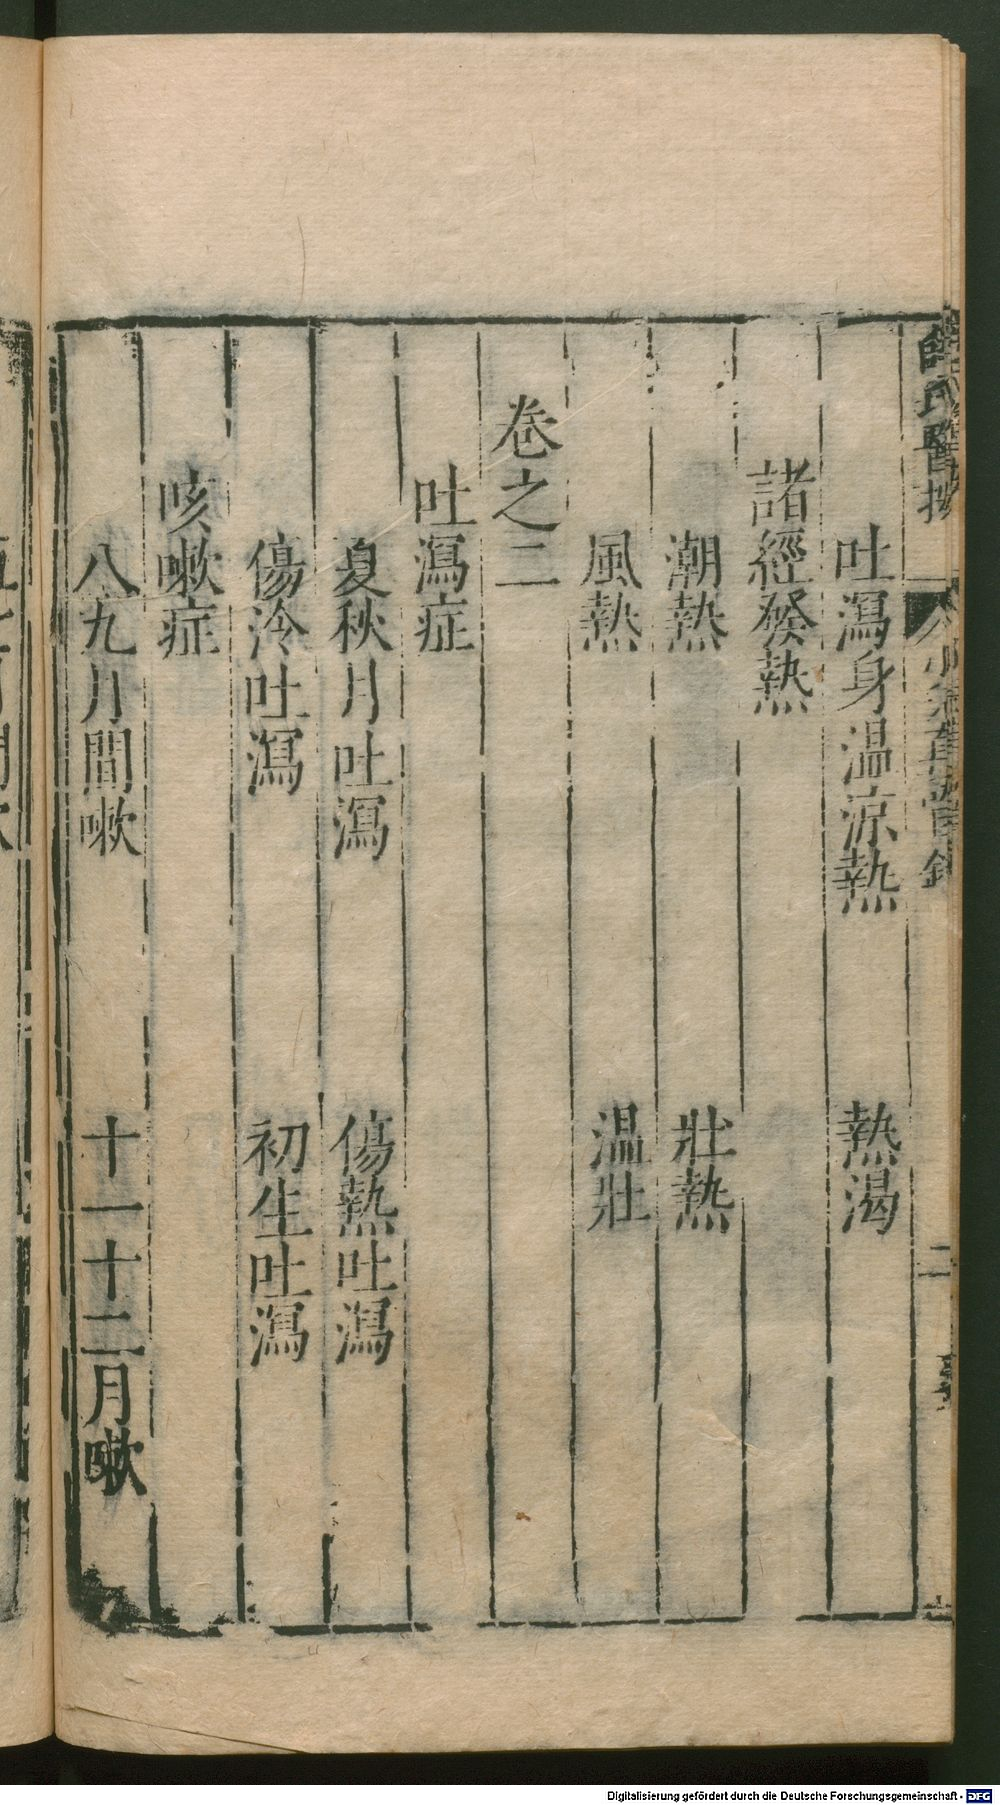 吐瀉身温凉熱　熱渴
諸經發熱
潮熱　壯熱
風熱　温壯
卷之二
吐瀉症
夏秋月吐瀉　傷熱吐瀉
傷冷吐瀉　初生吐瀉
咳嗽症
八九月間嗽　十一十二月嗽
Digitalisierung gefördert durch die Deutsche Forschungsgemeinschaft - DFG